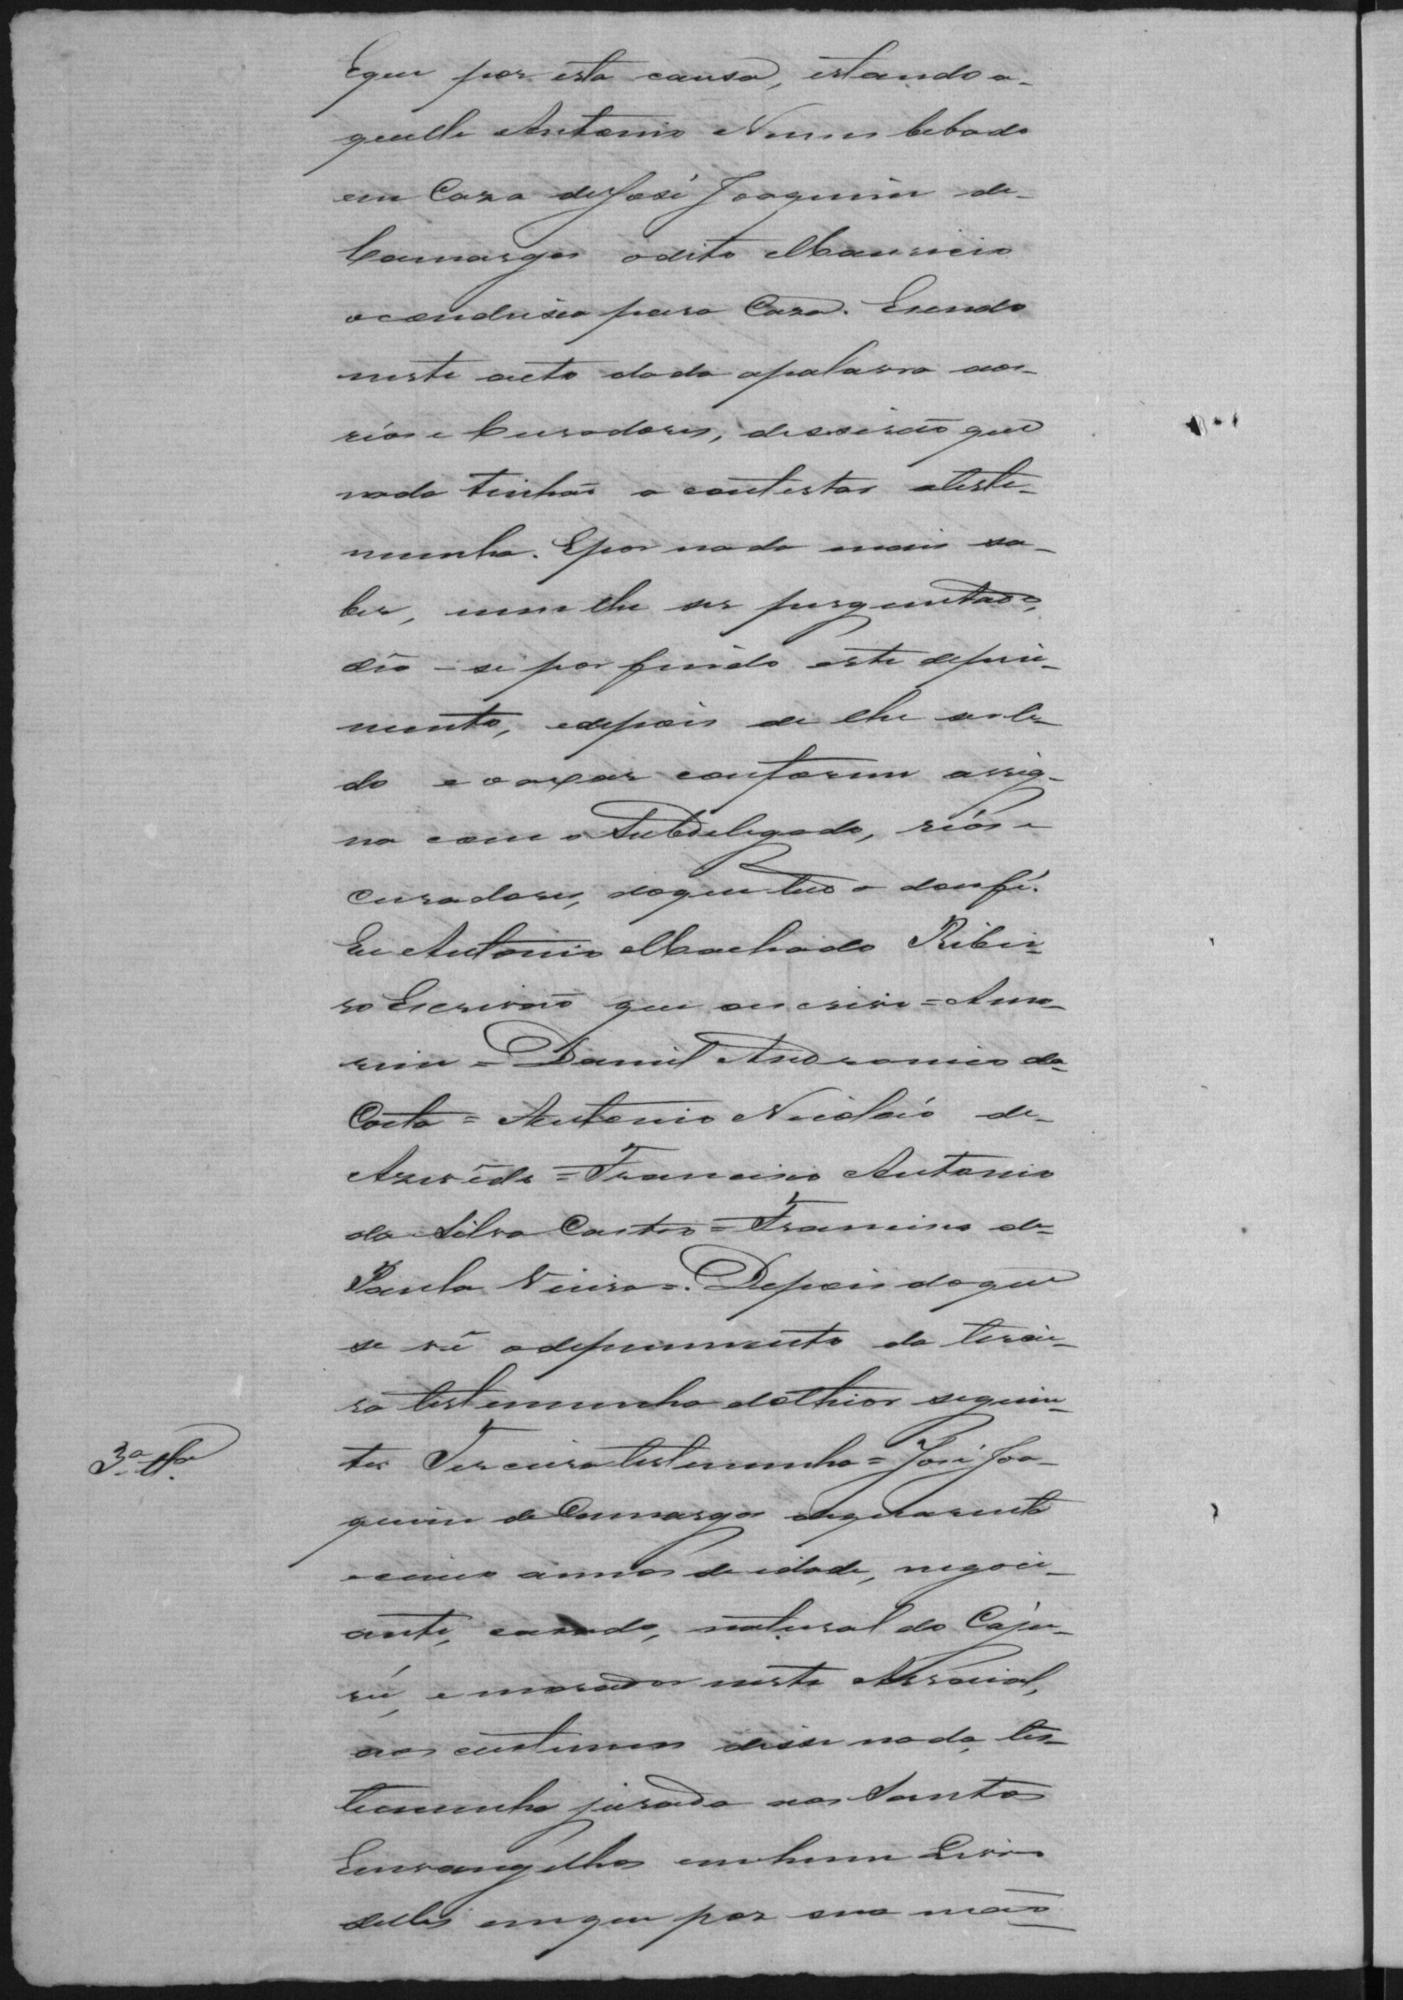 Eque por esta causa, estando a-
quelle Antonio Nunes bebado
em Caza de José Joaquim de-
Camargos odito Mauricio
oconduzio para Caza. Esendo
neste acto dada apalavra aos
réos e Curadores, disserão que
nada tinhão a contestar ateste-
munha. Epor nada mais sa-
ber, nem lhe ser perguntado,
dêo-se por findo este depoi-
mento, edepois de lhe ser li-
do e o axar conforme assig-
na com o Subdelegado, réos e
curadores, doque tudo dou fé.
Eu Antonio Machado Ribei-
ro Escrivão que escrivi = Amo-
rim = Daniel Andronico da
Costa = Antonio Nicoláo de-
Azevêdo = Francisco Antonio
da Silva Castro = Francisco de
Paula Vieira =. Depois do que
se vê odepoimento da tercei-
ra testemunha dothior seguin-
te: Terceira testemunha = José Joa-
3ª Tª
quim de Camargos dequarenta
ecinco annos de idade, negoci-
ante, casado, natural do Caju-
rú, e morador neste Arraial,
aos costumes disse nada, tes-
temunha jurada aos Santos
Envangelhos em hum Livro
delles em que por sua mão